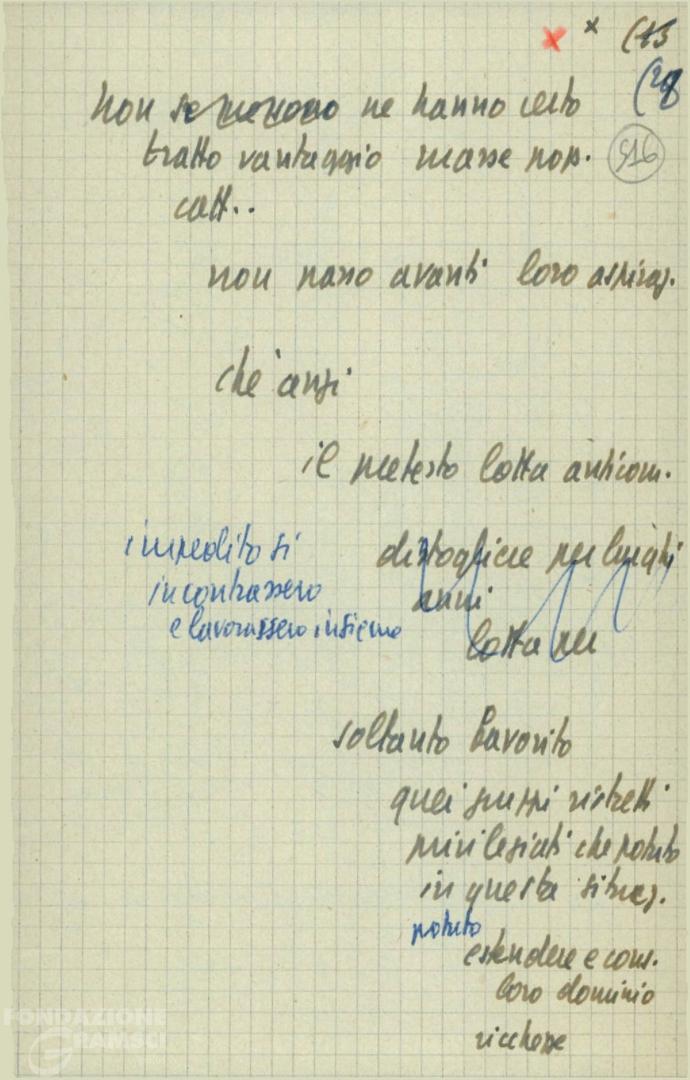 x x (13
(28
516
non ne hanno certo
tratto vantaggio masse pop.
catt..
non passo avanti loro aspiraz.
chè anzi
il pretesto lotta anticom.
impedito si
incontrassero
e lavorassero insieme
distogliere per lunghi
anni
lotta per
soltanto favorito
quei gruppi ristretti
privilegiati che potuto
in questa situaz.
potuto
estendere e cons.
loro dominio
ricchezze
FONDAZIONE
GRAMSCI